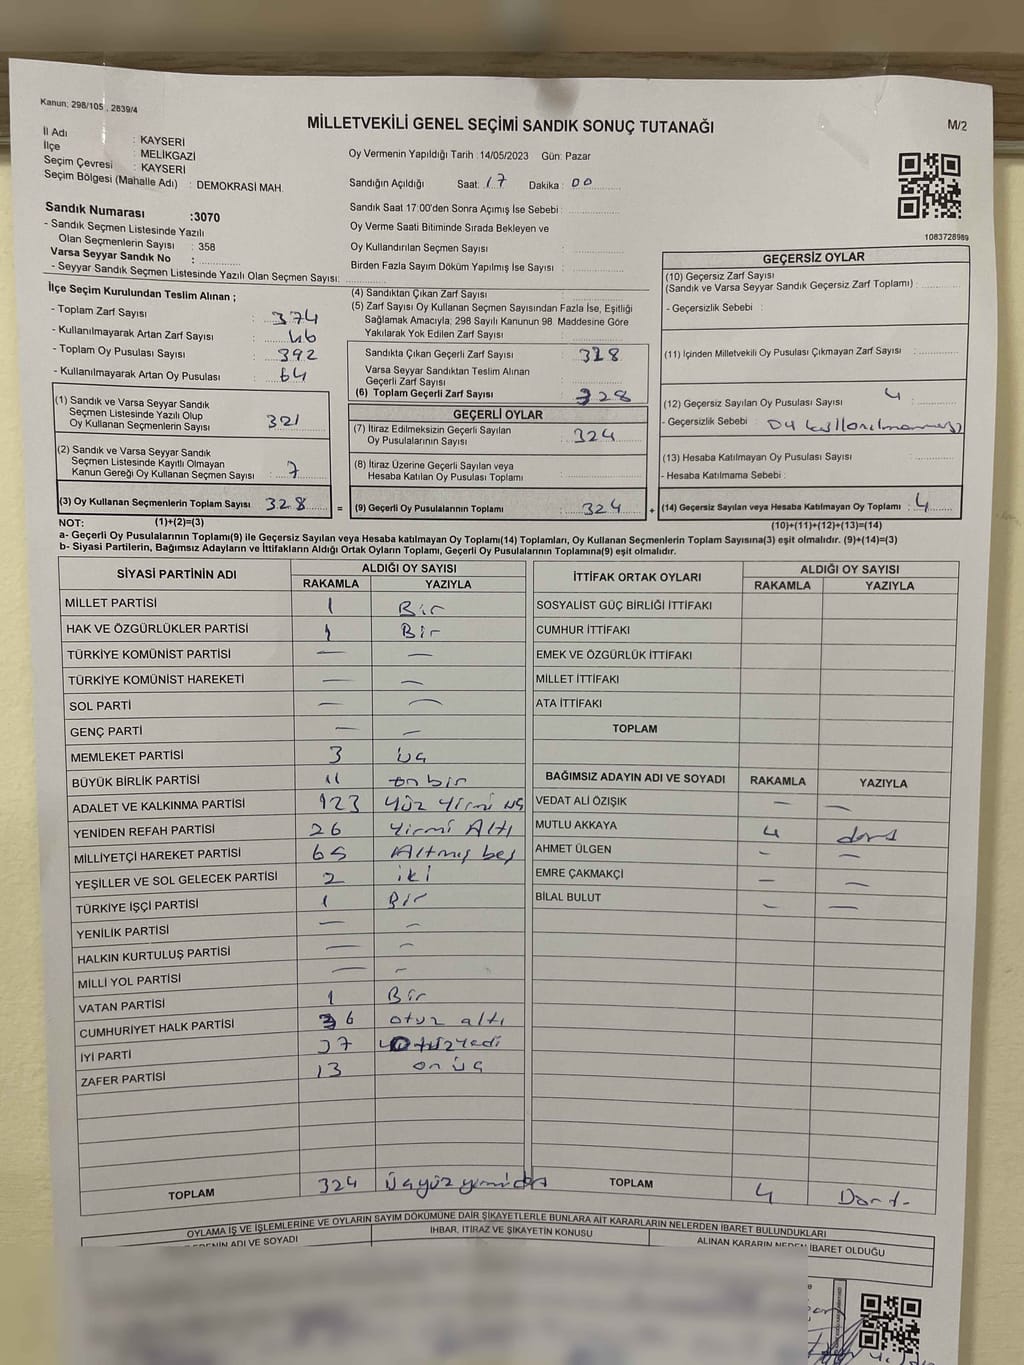 Kanun; 298/105 , 2839/4
MİLLETVEKİLİ GENEL SEÇİMİ SANDIK SONUÇ TUTANAĞI
M/2
İl Adı : KAYSERİ
İlçe : MELİKGAZİ
Seçim Çevresi : KAYSERİ
Seçim Bölgesi (Mahalle Adı) : DEMOKRASİ MAH.
Oy Vermenin Yapıldığı Tarih :14/05/2023 Gün: Pazar
Sandığın Açıldığı Saat: 17 Dakika : 00
Sandık Numarası :3070
- Sandık Seçmen Listesinde Yazılı
Olan Seçmenlerin Sayısı : 358
Varsa Seyyar Sandık No :
- Seyyar Sandık Seçmen Listesinde Yazılı Olan Seçmen Sayısı:
Sandık Saat 17:00'den Sonra Açımış İse Sebebi :
Oy Verme Saati Bitiminde Sırada Bekleyen ve
Oy Kullandırılan Seçmen Sayısı :
Birden Fazla Sayım Döküm Yapılmış İse Sayısı :
1083728989
İlçe Seçim Kurulundan Teslim Alınan ;
- Toplam Zarf Sayısı : 374
- Kullanılmayarak Artan Zarf Sayısı : 46
- Toplam Oy Pusulası Sayısı : 392
- Kullanılmayarak Artan Oy Pusulası : 64
(1) Sandık ve Varsa Seyyar Sandık
Seçmen Listesinde Yazılı Olup
Oy Kullanan Seçmenlerin Sayısı : 321
(2) Sandık ve Varsa Seyyar Sandık
Seçmen Listesinde Kayıtlı Olmayan
Kanun Gereği Oy Kullanan Seçmen Sayısı : 7
(3) Oy Kullanan Seçmenlerin Toplam Sayısı 328 =
(1)+(2)=(3)
(4) Sandıktan Çıkan Zarf Sayısı :
(5) Zarf Sayısı Oy Kullanan Seçmen Sayısından Fazla İse, Eşitliği
Sağlamak Amacıyla; 298 Sayılı Kanunun 98. Maddesine Göre
Yakılarak Yok Edilen Zarf Sayısı :
Sandıkta Çıkan Geçerli Zarf Sayısı : 328
Varsa Seyyar Sandıktan Teslim Alınan
Geçerli Zarf Sayısı :
(6) Toplam Geçerli Zarf Sayısı : 328
GEÇERLİ OYLAR
(7) İtiraz Edilmeksizin Geçerli Sayılan
Oy Pusulalarının Sayısı : 324
(8) İtiraz Üzerine Geçerli Sayılan veya
Hesaba Katılan Oy Pusulası Toplamı :
(9) Geçerli Oy Pusulalarının Toplamı : 324 +
GEÇERSİZ OYLAR
(10) Geçersiz Zarf Sayısı
(Sandık ve Varsa Seyyar Sandık Geçersiz Zarf Toplamı) :
- Geçersizlik Sebebi :
(11) İçinden Milletvekili Oy Pusulası Çıkmayan Zarf Sayısı :
(12) Geçersiz Sayılan Oy Pusulası Sayısı : 4
- Geçersizlik Sebebi :
(13) Hesaba Katılmayan Oy Pusulası Sayısı :
- Hesaba Katılmama Sebebi :
(14) Geçersiz Sayılan veya Hesaba Katılmayan Oy Toplamı : 4
(10)+(11)+(12)+(13)=(14)
NOT:
a- Geçerli Oy Pusulalarının Toplamı(9) ile Geçersiz Sayılan veya Hesaba katılmayan Oy Toplamı(14) Toplamları, Oy Kullanan Seçmenlerin Toplam Sayısına(3) eşit olmalıdır. (9)+(14)=(3)
b- Siyasi Partilerin, Bağımsız Adayların ve İttifakların Aldığı Ortak Oyların Toplamı, Geçerli Oy Pusulalarının Toplamına(9) eşit olmalıdır.
SİYASİ PARTİNİN ADI ALDIĞI OY SAYISI
RAKAMLA YAZIYLA
MİLLET PARTİSİ 1 Bir
HAK VE ÖZGÜRLÜKLER PARTİSİ 1 Bir
TÜRKİYE KOMÜNİST PARTİSİ — —
TÜRKİYE KOMÜNİST HAREKETİ — —
SOL PARTİ — —
GENÇ PARTİ — —
MEMLEKET PARTİSİ 3 üç
BÜYÜK BİRLİK PARTİSİ 11 on bir
ADALET VE KALKINMA PARTİSİ 123 Yüz Yirmi üç
YENİDEN REFAH PARTİSİ 26 Yirmi Altı
MİLLİYETÇİ HAREKET PARTİSİ 65 Altmış beş
YEŞİLLER VE SOL GELECEK PARTİSİ 2 iki
TÜRKİYE İŞÇİ PARTİSİ 1 Bir
YENİLİK PARTİSİ — —
HALKIN KURTULUŞ PARTİSİ — —
MİLLİ YOL PARTİSİ — —
VATAN PARTİSİ 1 Bir
CUMHURİYET HALK PARTİSİ 36 otuz altı
İYİ PARTİ 37 otuzyedi
ZAFER PARTİSİ 13 on üç
TOPLAM 324
İTTİFAK ORTAK OYLARI ALDIĞI OY SAYISI
RAKAMLA YAZIYLA
SOSYALİST GÜÇ BİRLİĞİ İTTİFAKI
CUMHUR İTTİFAKI
EMEK VE ÖZGÜRLÜK İTTİFAKI
MİLLET İTTİFAKI
ATA İTTİFAKI
TOPLAM
BAĞIMSIZ ADAYIN ADI VE SOYADI RAKAMLA YAZIYLA
VEDAT ALİ ÖZIŞIK — —
MUTLU AKKAYA 4 dört
AHMET ÜLGEN — —
EMRE ÇAKMAKÇİ — —
BİLAL BULUT — —
TOPLAM 4 Dört
OYLAMA İŞ VE İŞLEMLERİNE VE OYLARIN SAYIM DÖKÜMÜNE DAİR ŞİKAYETLERLE BUNLARA AİT KARARLARIN NELERDEN İBARET BULUNDUKLARI
ADI VE SOYADI İHBAR, İTİRAZ VE ŞİKAYETİN KONUSU ALINAN KARARIN NEDEN İBARET OLDUĞU